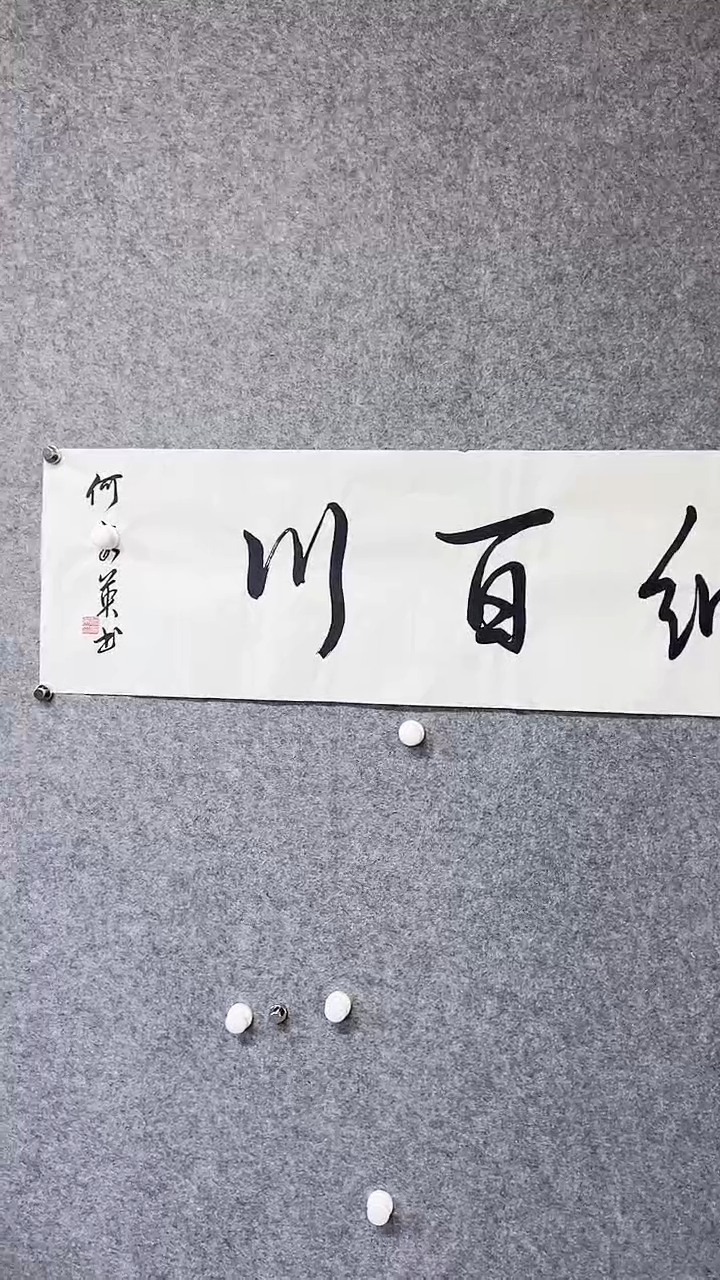 纳百川
何英书